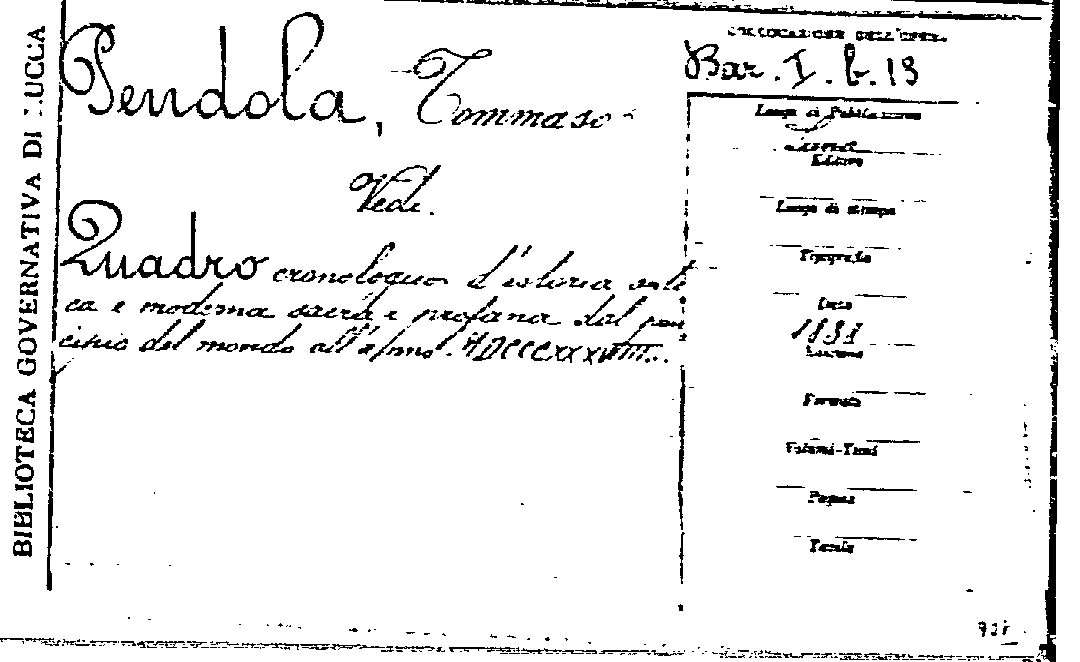 BIBLIOTECA GOVERNATIVA DI LUCCA
Pendola, Tommaso
Vedi.
Quadro cronologico d'istoria anti
ca e moderna sacra e profana dal prin
cipio del mondo all'anno
COLLOCAZIONE DELL'OPERA
Bar. I. b. 13
Luogo di Pubblicazione
Editore
Luogo di stampa
Tipografo
Data
Edizione
Formato
Volumi-Tomi
Pagine
Tavole